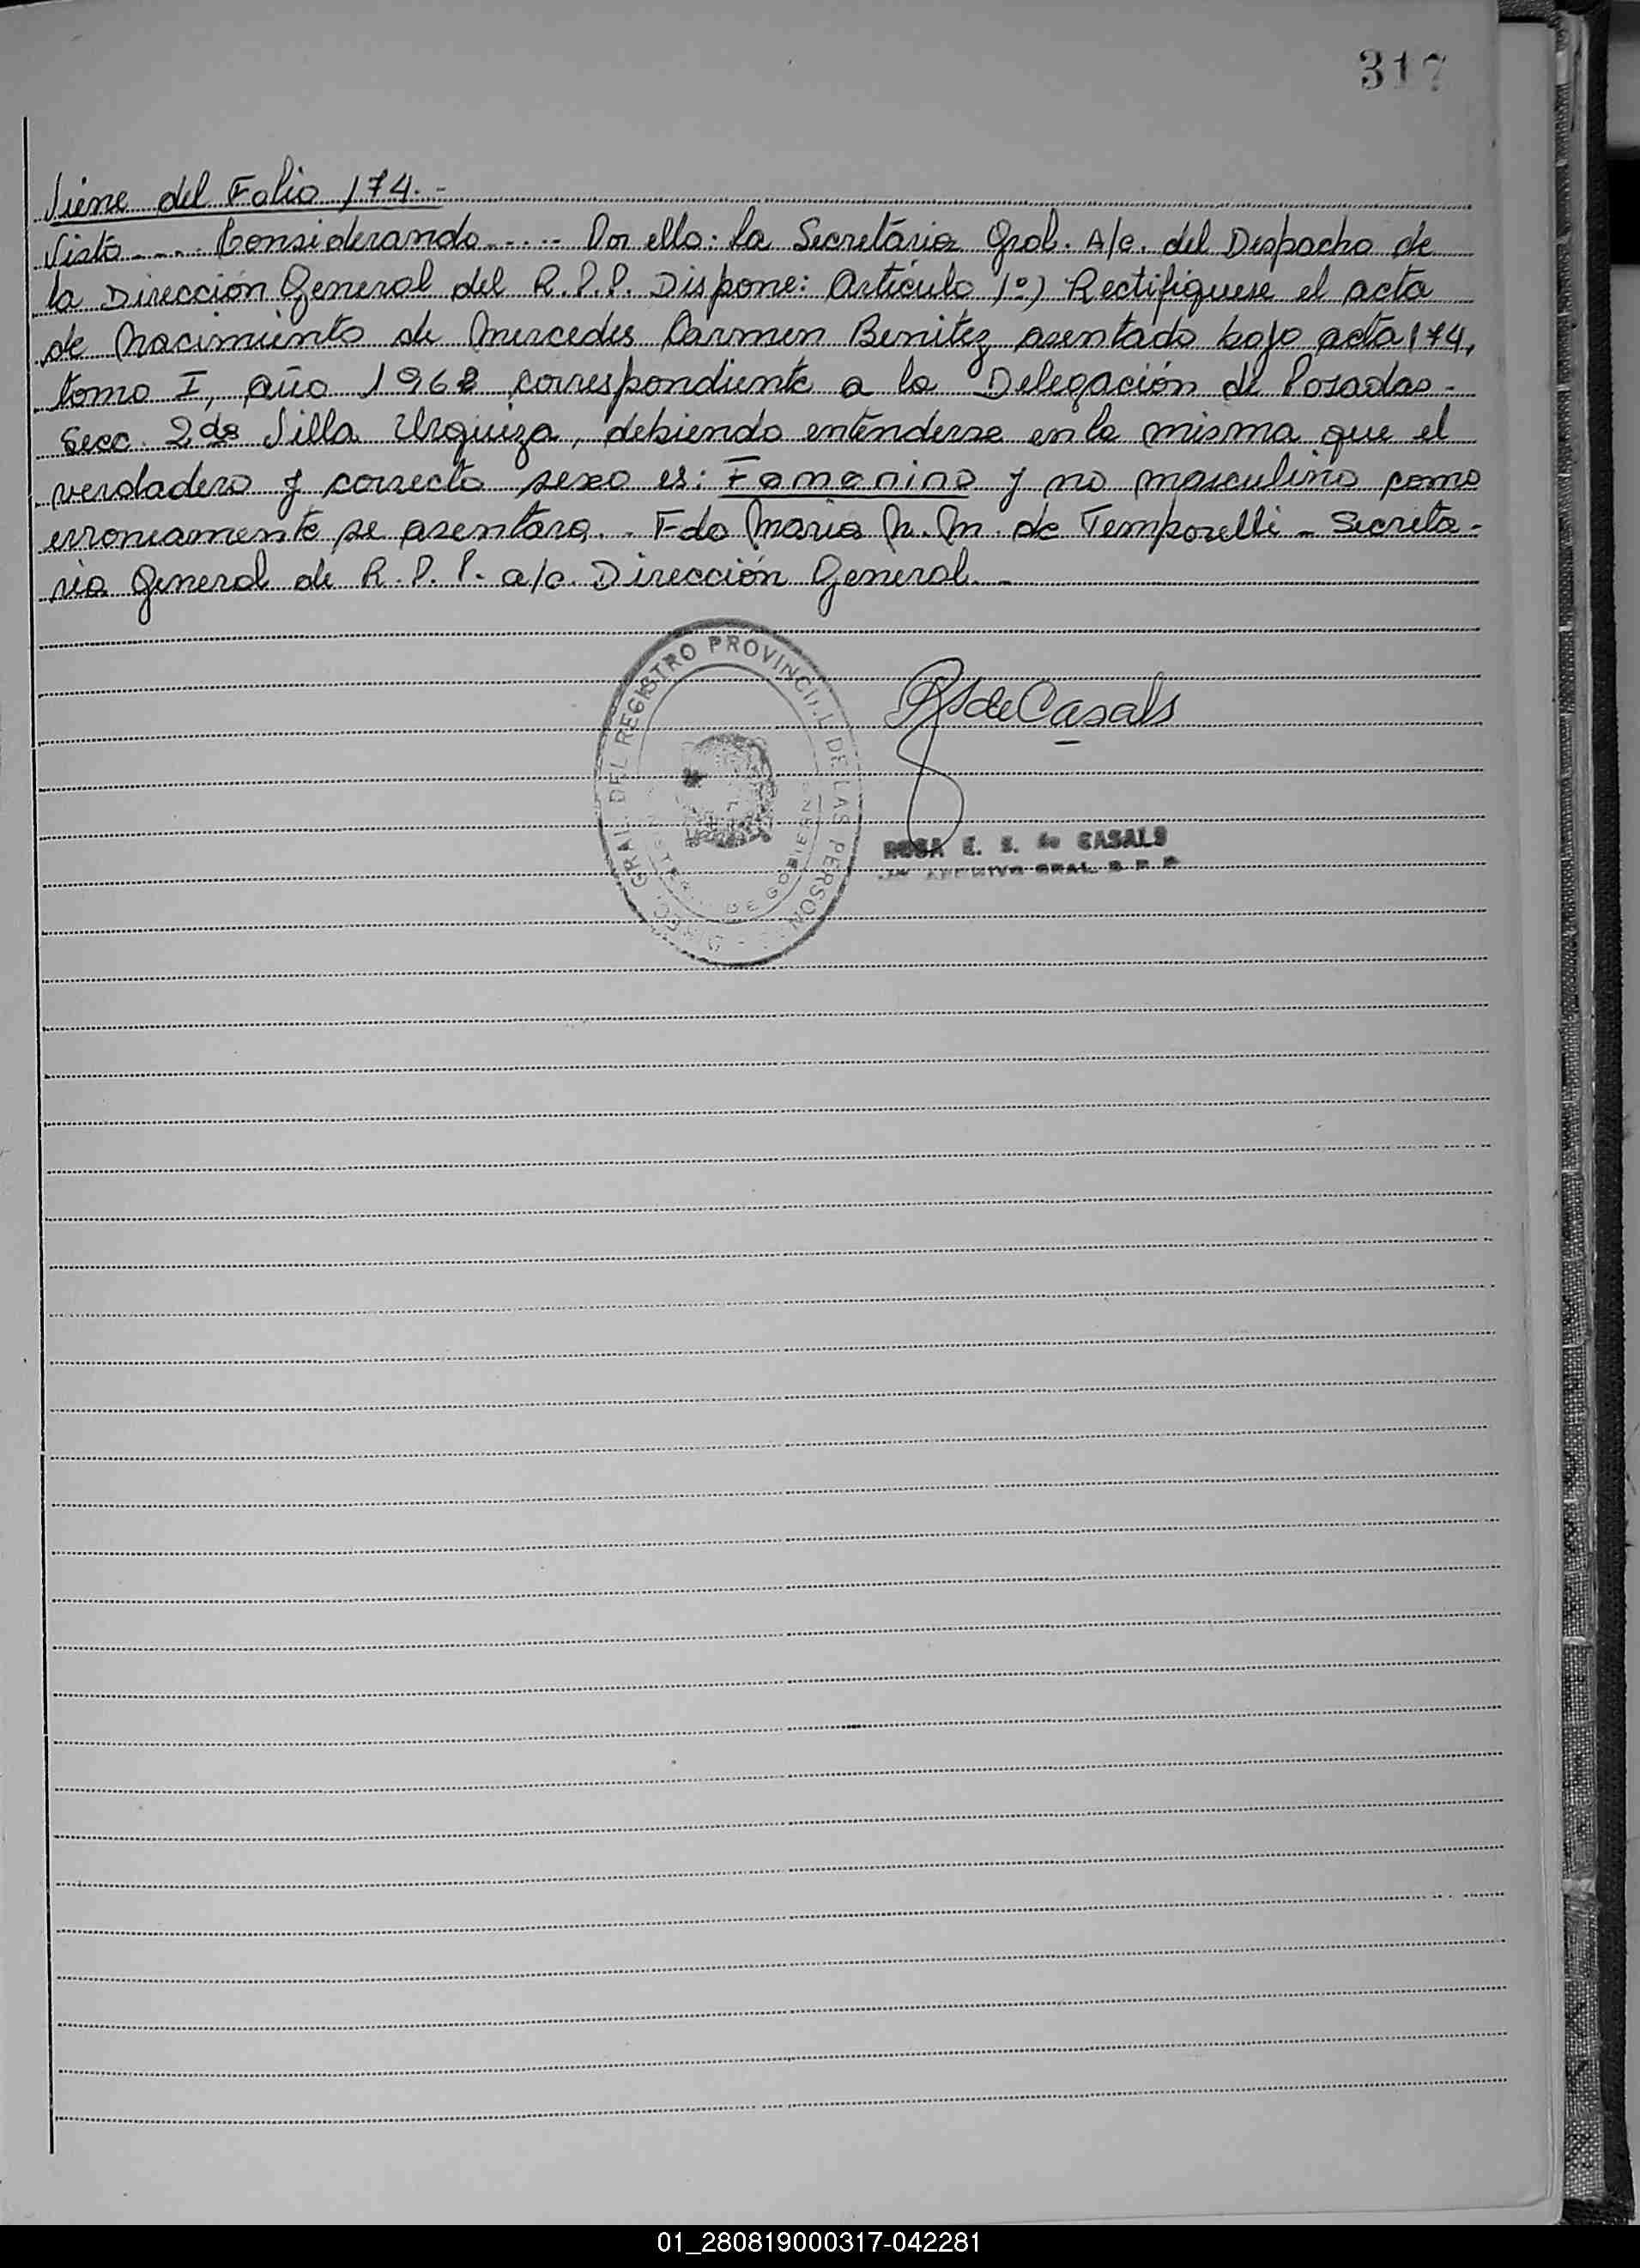 317
Viene del Folio 174.-
Visto.... Considerando..... Por ello: la Secretária Gral. A/c. del Despacho de
la Dirección General del R.P.P. Dispone: Artículo 1º) Rectifiquese el acta
de Nacimiento de Mercedes Carmen Benitez asentado bajo acta 174,
tomo I, año 1962 correspondiente a la Delegación de Posadas-
Secc. 2da Villa Urquiza, debiendo entenderse en la misma que el
verdadero y correcto sexo es: Femenino y no masculino como
erroneamente se asentara.- Fdo Maria M. M. de Temporelli - Secreta-
ria General de R.P.P. a/c. Dirección General.-
DIREC. GRAL. DEL REGISTRO PROVINCIAL DE LAS PERSONAS
DE GOBIERNO
RS de Casals
ROSA E. S. de CASALS
ARCHIVO GRAL. R. P. P.
01_280819000317-042281